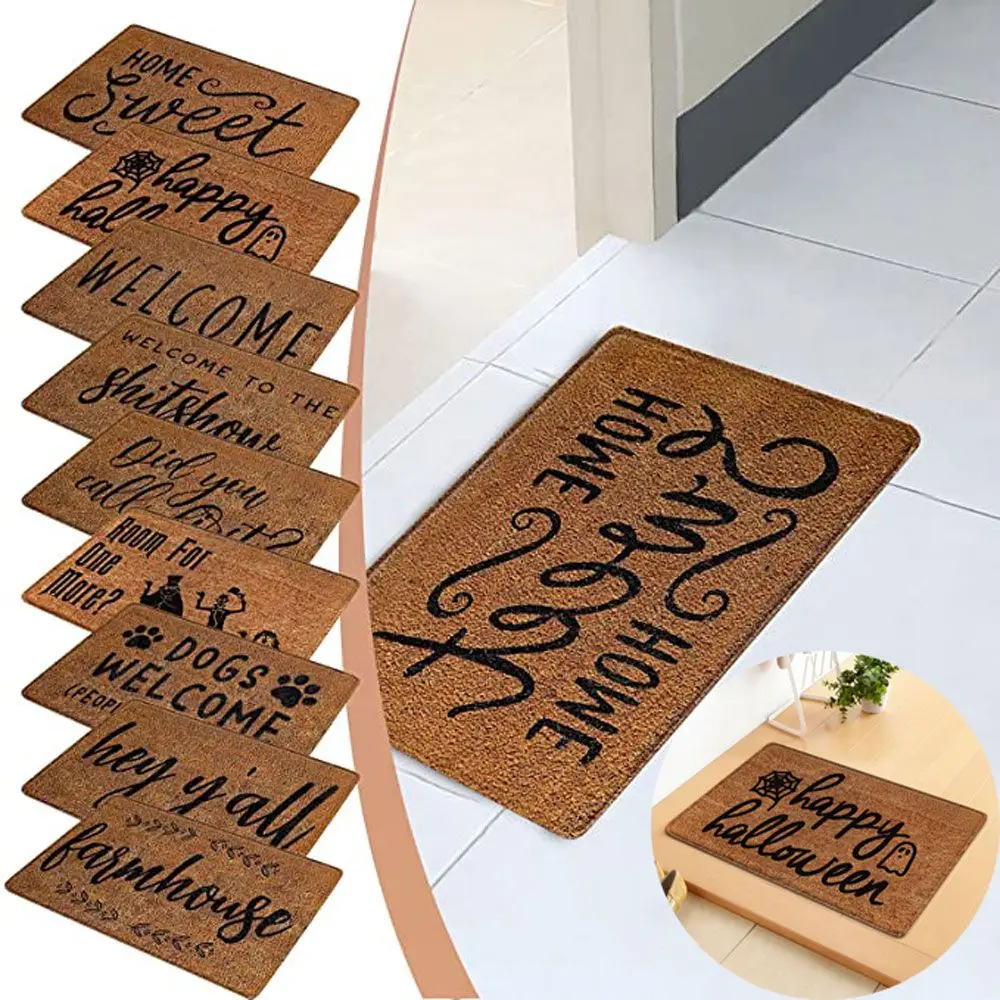 HOME
Sweet
happy
WELCOME
WELCOME TO THE
shitshow
Did you
call
Room For
One
More?
DOGS
WELCOME
hey y'all
farmhouse
HOME
Sweet
HOME
happy
halloween